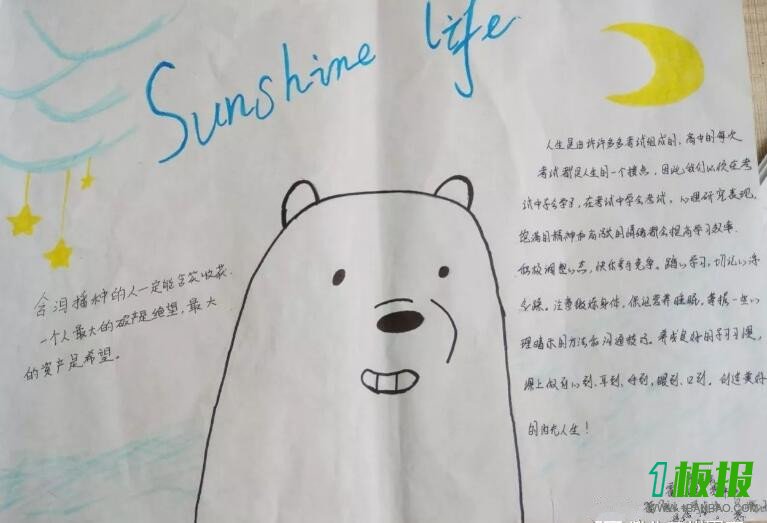 Sunshine life
含泪播种的人一定能含笑收获.
一个人最大的破产是绝望，最大
的资产是希望。
人生是由许许多多考试组成的，高中的每次
考试都是人生的一个接点，因此我们必须在考
试中学会学习，在考试中学会考试。心理研究表现，
饱满的精神和高涨的情绪都会提高学习效率.
积极调整心态，快乐参与竞争。踏心学习，切记心浮
气躁。注意锻炼身体，保证营养睡眠，掌握一些心
理暗示的方法和沟通技巧。养成良好的学习习惯，
课上做到心到、耳到、手到、眼到、口到。创造美好
的阳光人生！
1板报
WWW.1BANBAO.COM